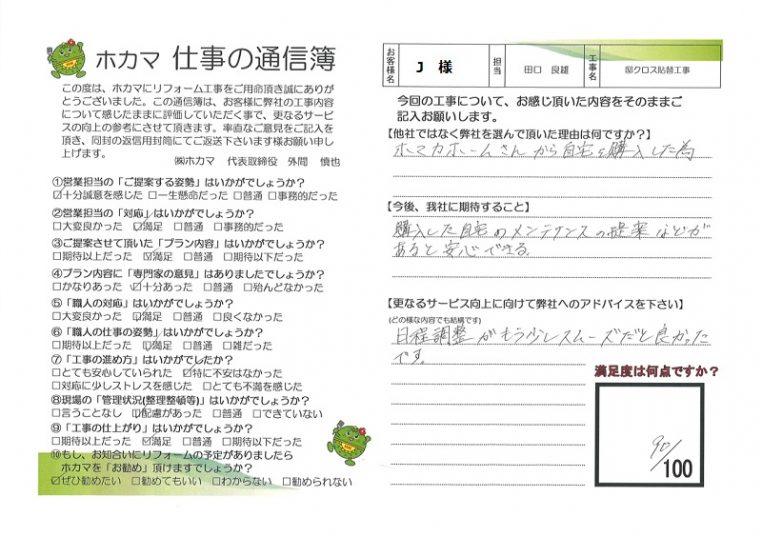 ホカマ 仕事の通信簿
この度は、ホカマにリフォーム工事をご用命頂き誠にありが
とうございました。この通信簿は、お客様に弊社の工事内容
について感じたままに評価していただく事で、更なるサービ
スの向上の参考にさせて頂きます。率直なご意見をご記入を
頂き、同封の返信用封筒にてご返送下さいます様お願い申し
上げます。
㈱ホカマ 代表取締役 外間 慎也
①営業担当の「ご提案する姿勢」はいかがでしょうか?
☑十分誠意を感じた □一生懸命だった □普通 □事務的だった
②営業担当の「対応」はいかがでしょうか?
□大変良かった ☑満足 □普通 □事務的だった
③ご提案させて頂いた「プラン内容」はいかがでしょうか?
□期待以上だった ☑満足 □普通 □期待以下だった
④プラン内容に「専門家の意見」はありましたでしょうか?
□かなりあった ☑十分あった □普通 □殆んどなかった
⑤「職人の対応」はいかがでしょうか?
□大変良かった ☑満足 □普通 □良くなかった
⑥「職人の仕事の姿勢」はいかがでしょうか?
□期待以上だった ☑満足 □普通 □雑だった
⑦「工事の進め方」はいかがでしたか?
□とても安心していられた ☑特に不安はなかった
□対応に少しストレスを感じた □とても不満を感じた
⑧現場の「管理状況(整理整頓等)」はいかがでしょうか?
□言うことなし ☑配慮があった □普通 □できていない
⑨「工事の仕上がり」はいかがでしょうか?
□期待以上だった ☑満足 □普通 □期待以下だった
⑩もし、お知合いにリフォームの予定がありましたら
ホカマを「お勧め」頂けますでしょうか?
☑ぜひ勧めたい □勧めてもいい □わからない □勧められない
お客様名 J 様 担当 田口 良雄 工事名 邸クロス貼替工事
今回の工事について、お感じ頂いた内容をそのままご
記入お願いします。
【他社ではなく弊社を選んで頂いた理由は何ですか?】
ホマカホームさんから自宅を購入した為
【今後、我社に期待すること】
購入した自宅のメンテナンスの提案などが
あると安心できる。
【更なるサービス向上に向けて弊社へのアドバイスを下さい】
(どの様な内容でも結構です)
日程調整がもう少しスムーズだと良かった
です。
満足度は何点ですか?
90/100